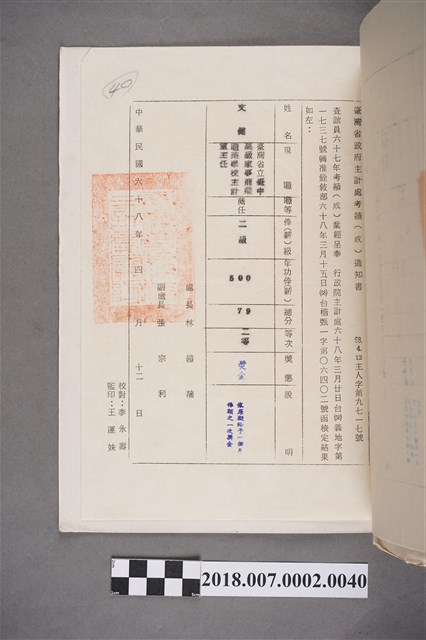 40
臺灣省政府主計處考績（成）通知書
68.4.12主人字第九七一七號
查該員六十七年考績（成）業經呈奉 行政院主計處六十八年三月廿日台㈥義地字第
一七三七號轉准銓敘部六十八年三月十五日㈥台楷甄一字第〇六四〇二號函檢定結果
如左：
姓名
現職
職等
俸（薪）級
年功俸（薪）
總分
等次
獎懲
說明
文
臺灣省立臺中
高級家事商業
職業學校主計
室主任
薦任
二級
500
79
二等
依原敘給予一個月
俸額之一次獎金
處長 林
副處長 張宗利
中華民國六十八年四月十二日
校對：李永壽
監印：王蓮妹
2018.007.0002.0040